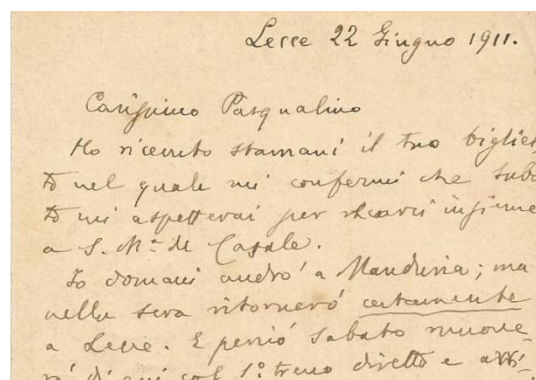 Lecce 22 Giugno 1911.
Carissimo Pasqualino
Ho ricevuto stamani il tuo bigliet
to nel quale mi confermi che saba
to mi aspetterai per recarci insieme
a S. Mª de Casale.
Io domani andrò a Manduria; ma
nella sera ritornerò certamente
a Lecce. E perciò sabato muove-
rò di qui col 1º treno diretto e arri-